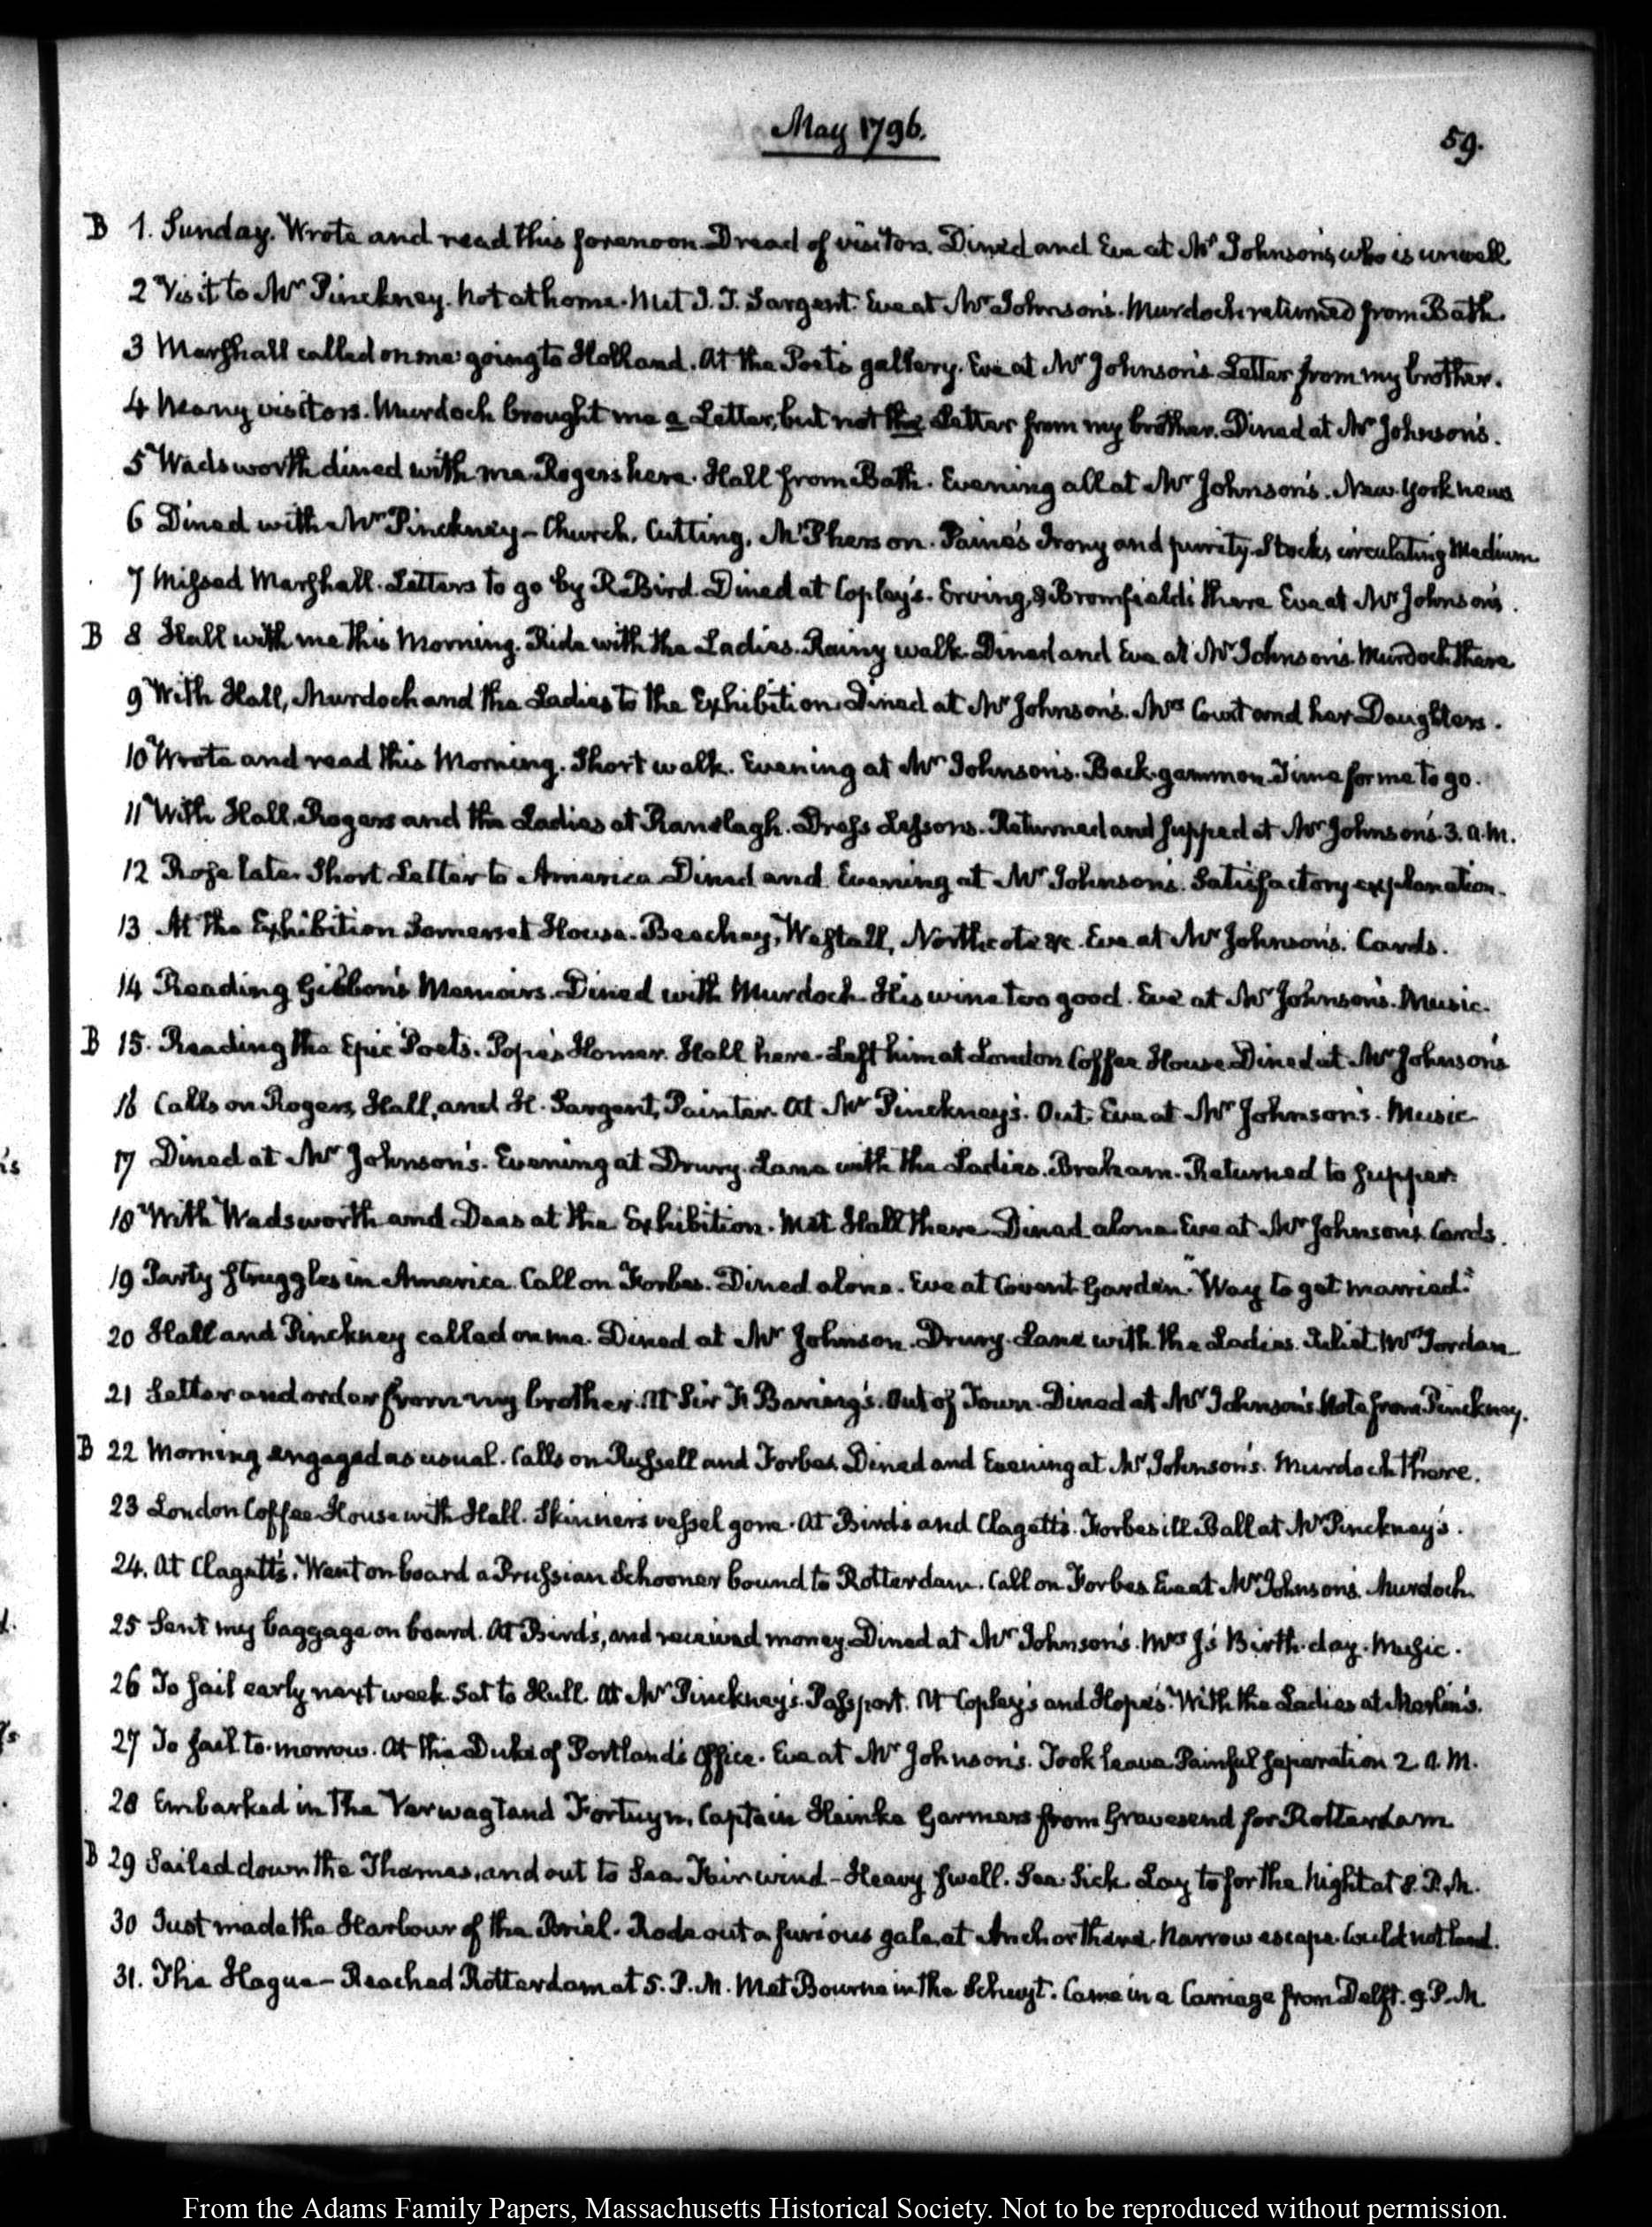 May 1796.
59.
B 1. Sunday. Wrote and read this forenoon. Dread of visitors. Dined and Eve at Mr Johnson's, who is unwell
2 Visit to Mr Pinckney. Not at home. Met I. T. Sargent. Eve at Mr Johnson's. Murdoch returned from Bath.
3 Marshall called on me: going to Holland. At the Poet's gallery. Eve at Mr Johnson's. Letter from my brother.
4 Many visitors. Murdoch brought me a Letter, but not the Letter from my brother. Dined at Mr Johnson's.
5 Wadsworth dined with me. Rogers here. Hall from Bath. Evening all at Mr Johnson's. New York news
6 Dined with Mr Pinckney – Church, Cutting, McPherson. Paine's Irony and purity. Stocks circulating Medium
7 Missed Marshall. Letters to go by R. Bird. Dined at Copley's. Erving, & Bromfields there Eve at Mr Johnson's.
B 8 Hall with me this Morning. Ride with the Ladies. Rainy walk. Dined and Eve at Mr Johnson's. Murdoch there
9 With Hall, Murdoch and the Ladies to the Exhibition. Dined at Mr Johnson's. Mrs Court and her Daughters.
10 Wrote and read this Morning. Short walk. Evening at Mr Johnson's. Back-gammon. Time for me to go.
11 With Hall, Rogers and the Ladies at Ranelagh. Dress Lessons. Returned and supped at Mr Johnson's. 3. a.m.
12 Rose late. Short Letter to America. Dined and Evening at Mr Johnson's. Satisfactory explanation.
13 At the Exhibition Somerset House. Beachey, Westall, Northcote &c. Eve at Mr Johnson's. Cards.
14 Reading Gibbon's Memoirs. Dined with Murdoch. His wine too good. Eve at Mr Johnson's. Music.
B 15. Reading the Epic Poets. Pope's Homer. Hall here. Left him at London Coffee House. Dined at Mr Johnson's
16 Calls on Rogers, Hall, and H. Sargent, Painter. At Mr Pinckney's. Out. Eve at Mr Johnson's. Music
17 Dined at Mr Johnson's. Evening at Drury-Lane with the Ladies. Braham. Returned to supper.
18 With Wadsworth and Deas at the Exhibition. Met Hall there. Dined alone. Eve at Mr Johnson's. Cards.
19 Party struggles in America. Call on Forbes. Dined alone. Eve at Covent Garden. "Way to get married."
20 Hall and Pinckney called on me. Dined at Mr Johnson. Drury-Lane with the Ladies. Juliet Mrs Jordan
21 Letter and order from my brother. At Sir F. Baring's. Out of Town. Dined at Mr Johnson's. Note from Pinckney.
B 22 Morning engaged as usual. Calls on Russell and Forbes. Dined and Evening at Mr Johnson's. Murdoch there.
23 London Coffee-House with Hall. Skinner's vessel gone. At Bird's and Clagett's. Forbes ill. Ball at Mr Pinckney's.
24. At Clagett's. Went on board a Prussian Schooner bound to Rotterdam. Call on Forbes. Eve at Mr Johnson's. Murdoch.
25 Sent my baggage on board. At Bird's, and received money. Dined at Mr Johnson's. Mrs J's Birth-day. Music.
26 To sail early next week. Sat to Hull. At Mr Pinckney's. Passport. At Copley's and Hope's. With the Ladies at Merlin's.
27 To sail to-morrow. At the Duke of Portland's Office. Eve at Mr Johnson's. Took leave. Painful separation 2 A.M.
28 Embarked in the Verwagtand Fortuyn, Captain Heinke Garmers from Gravesend for Rotterdam
B 29 Sailed down the Thames, and out to Sea. Fair wind – Heavy swell. Sea Sick. Lay to for the Night at 8. P.M.
30 Just made the Harbour of the Briel. Rode out a furious gale, at Anchor there. Narrow escape. Could not land.
31. The Hague – Reached Rotterdam at 5. P.M. Met Bourne in the Schuyt. Came in a Carriage from Delft. 9 P.M.
From the Adams Family Papers, Massachusetts Historical Society. Not to be reproduced without permission.